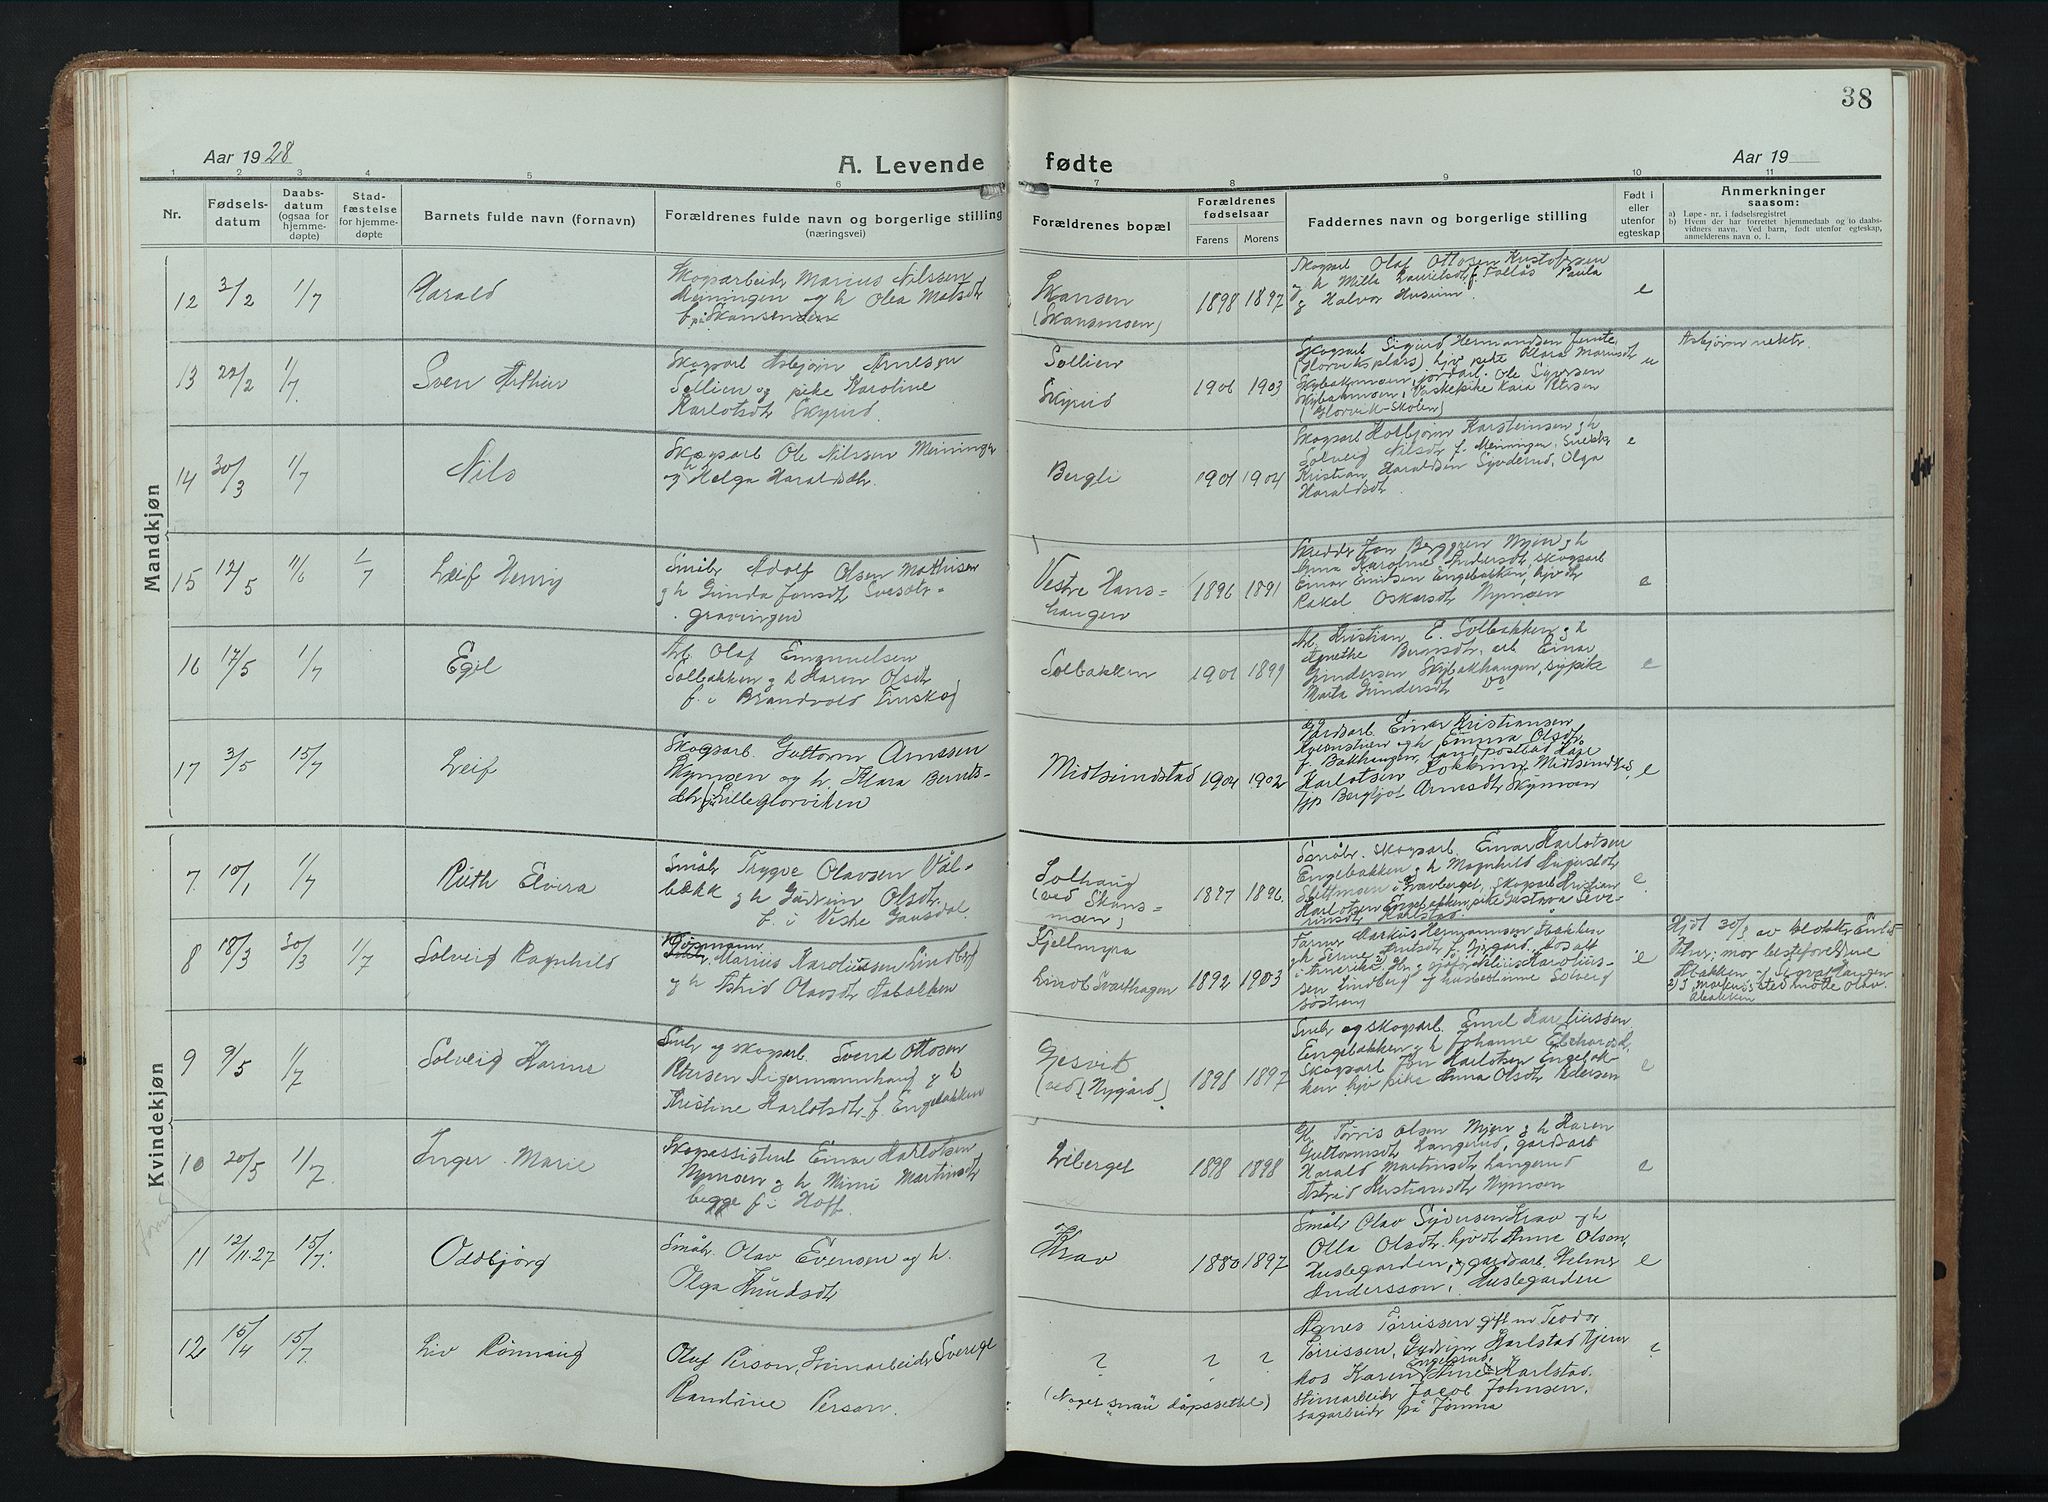 38
Aar 1928
A. Levende
fødte
Aar 19
1 2 3 4 5 6 7 8 9 10 11
Nr.
Fødsels-
datum
Daabs-
datum
(ogsaa for
hjemme-
døpte)
Stad-
fæstelse
for hjemme-
døpte
Barnets fulde navn (fornavn)
Forældrenes fulde navn og borgerlige stilling
(næringsvei)
Forældrenes bopæl
Forældrenes
fødselsaar
Farens Morens
Faddernes navn og borgerlige stilling
Født i
eller
utenfor
egteskap
Anmerkninger
saasom:
a) Løpe - nr. i fødselsregistret
b) Hvem der har forrettet hjemmedaab og to daabs-
vidners navn. Ved barn, født utenfor egteskap,
anmelderens navn o. l.
Mandkjøn
12 3/2 1/7 Harald
Skogsarbeidr Marius Nilssen
Meiningen og h Olea Matsdtr
f på Skansen
Skansen
(Skansmoen)
1898 1897
Skogsarb Olaf Ottosen Kristofersen
og h Milla Lauritsdtr f. Follås Paula
og Halvor Husum.
e
13 22/2 1/7. Sven Arthur
Skogsarb Asbjørn Arnesen
Sollien og pike Karoline
Karlotsdtr Skyrud
Sollien
Skyrud
1906 1903
Skogsarb Sigurd Hermandsen Jernte
(Glorviksplass) hjv pike Klara Marinsdtr
Skybakmoen, jordarb. Ole Syversen
Skybakmoen, Vaskepike Kara Petersen
(Glorvik-Skolen)
u
Asbjørn nektr
14 30/3 1/7 Nils
Skogsarb Ole Nilssen Meiningen
og h Helga Haraldsdtr.
Bergli
1901 1904
Skogsarb Torbjørn Karstensen og h
Solveig Nilsdtr f. Meiningen, Snekkr
Kristian Haraldsen Synderud, Olga
Haraldsdtr.
e
15 12/5 11/6 1/7 Leif Henry
Småbr Adolf Olsen Mathisen
og h Gunda Jonsdtr Svesetr-
gravingen
Vestre Hans-
haugen
1896 1891
Skredder Jan Berggren Nyen og h
Anna Karoline Andersdtr, skogsarb
Einar Emilsen Engebakken, hjv dtr
Rakel Oskarsdtr Nymoen
e
16 17/5 1/7 Egil
Arb. Olaf Emanuelsen
Solbakken og h Karen Olsdtr
f. i Brandvold Finskog
Solbakken
1901 1899
Arb. Kristian E. Solbakken og h
Agnethe Berntsdtr, arb Einar
Gundersen Skybakhaugen, sypike
Marta Gundersdtr
e
17 3/5 15/7 Leif
Skogsarb. Guttorm Arnesen
Nymoen og h. Klara Bernts-
dtr f. Lilleglorviken
Midtsundstad
1904 1902
Gårdsarb. Einar Kristiansen
Kvernstuen og h, Emma Olsdtr
f. Bakhaugen, landpostbud Kåre
Karlotsen Løkking Midtsundstad,
tjp Bergljot Arnesdtr Nymoen
e
Kvindekjøn
7 10/1 1/7 Ruth Elvira
Småbr Trygve Olavsen Vål-
bekk og h Gudrun Olsdtr.
f. i Vestre Gausdal.
Solhaug
(ved Skans-
moen)
1897 1896.
Småbr. skogsarb. Einar Karlotsen
Engebakken og h Magnhild Augustdtr
Slettmoen i Gravberget, skogsarb Kristian
Karlotsen Engebakken, pike Gustava Seve-
rinsdtr Karlstad.
e
8 18/3 30/3 1/7 Solveig Ragnhild
Kjøpmann
Marius Karoliussen Lindberg
og h Astrid Olavsdtr Aabakken
Kjellmyra
Lindb. Svarthagen
1892 1903
Farmer Markus Hermannsen Aabakken
og h Serine Knutsdtr f. Nygård, bosatt
i Amerika
Karolius-
sen Lindberg og husbestinne Solveig
Sostrang
e
Hjdt 30/3 av klokker Emil
mor besteforeldrene
Aabakken
i Marens sted møtte Olav
Aabakken
9 9/5 1/7 Solveig Karine
Smbr og skogsarb. Svend Ottosen
Petersen Digermannhaug og h
Kristine Karlotsdtr f. Engebakken
Gjesvik
(ved Nygård)
1898 1897
Smbr og skogsarb. Emil Kareliussen
Engebakken og h Johanne Ekhardsdtr,
skogsarb Jon Karlotsen Engebak-
ken hjv pike Anna Olsdtr Pedersen
e
10 20/5 1/7. Inger Marie
Skogassistent Einar Karlotsen
Nymoen og h Mimi Martinsdtr
begge f. i Hoff.
Liberget
1898 1898
Gr. Tørris Olsen Myen og h Karen
Guttormsdtr Haugerud, gårdsarb
Harald Martinsdtr Haugerud
Astrid Kristiansdtr Nymoen
e
11 12/11.27 15/7. Oddbjørg
Småbr. Olav Evensen og h.
Olga Knudsdtr
Krav
1880 1897
Småbr Olav Syversen Krav og h
Olla Olsdtr. hjv dt Anne Olsen,
Huslegarden, og gardsarb. Helmer
Andersson, Huslegarden
e
12 15/4 15/7. Liv Rønnaug
Oluf Person, Steinarbeidr Sverige
Randine Person.
?
(Noger "snau" dåpssettel)
? ?
Agnes Tørrissen gift m Teodor
Tørrissen, Gudrun Karlstad tjener
hos Karen Engelsrud, Arne Karlstad.
Steinarbeidr Jacob Johnsen,
sagarbeidr på Jømna
?